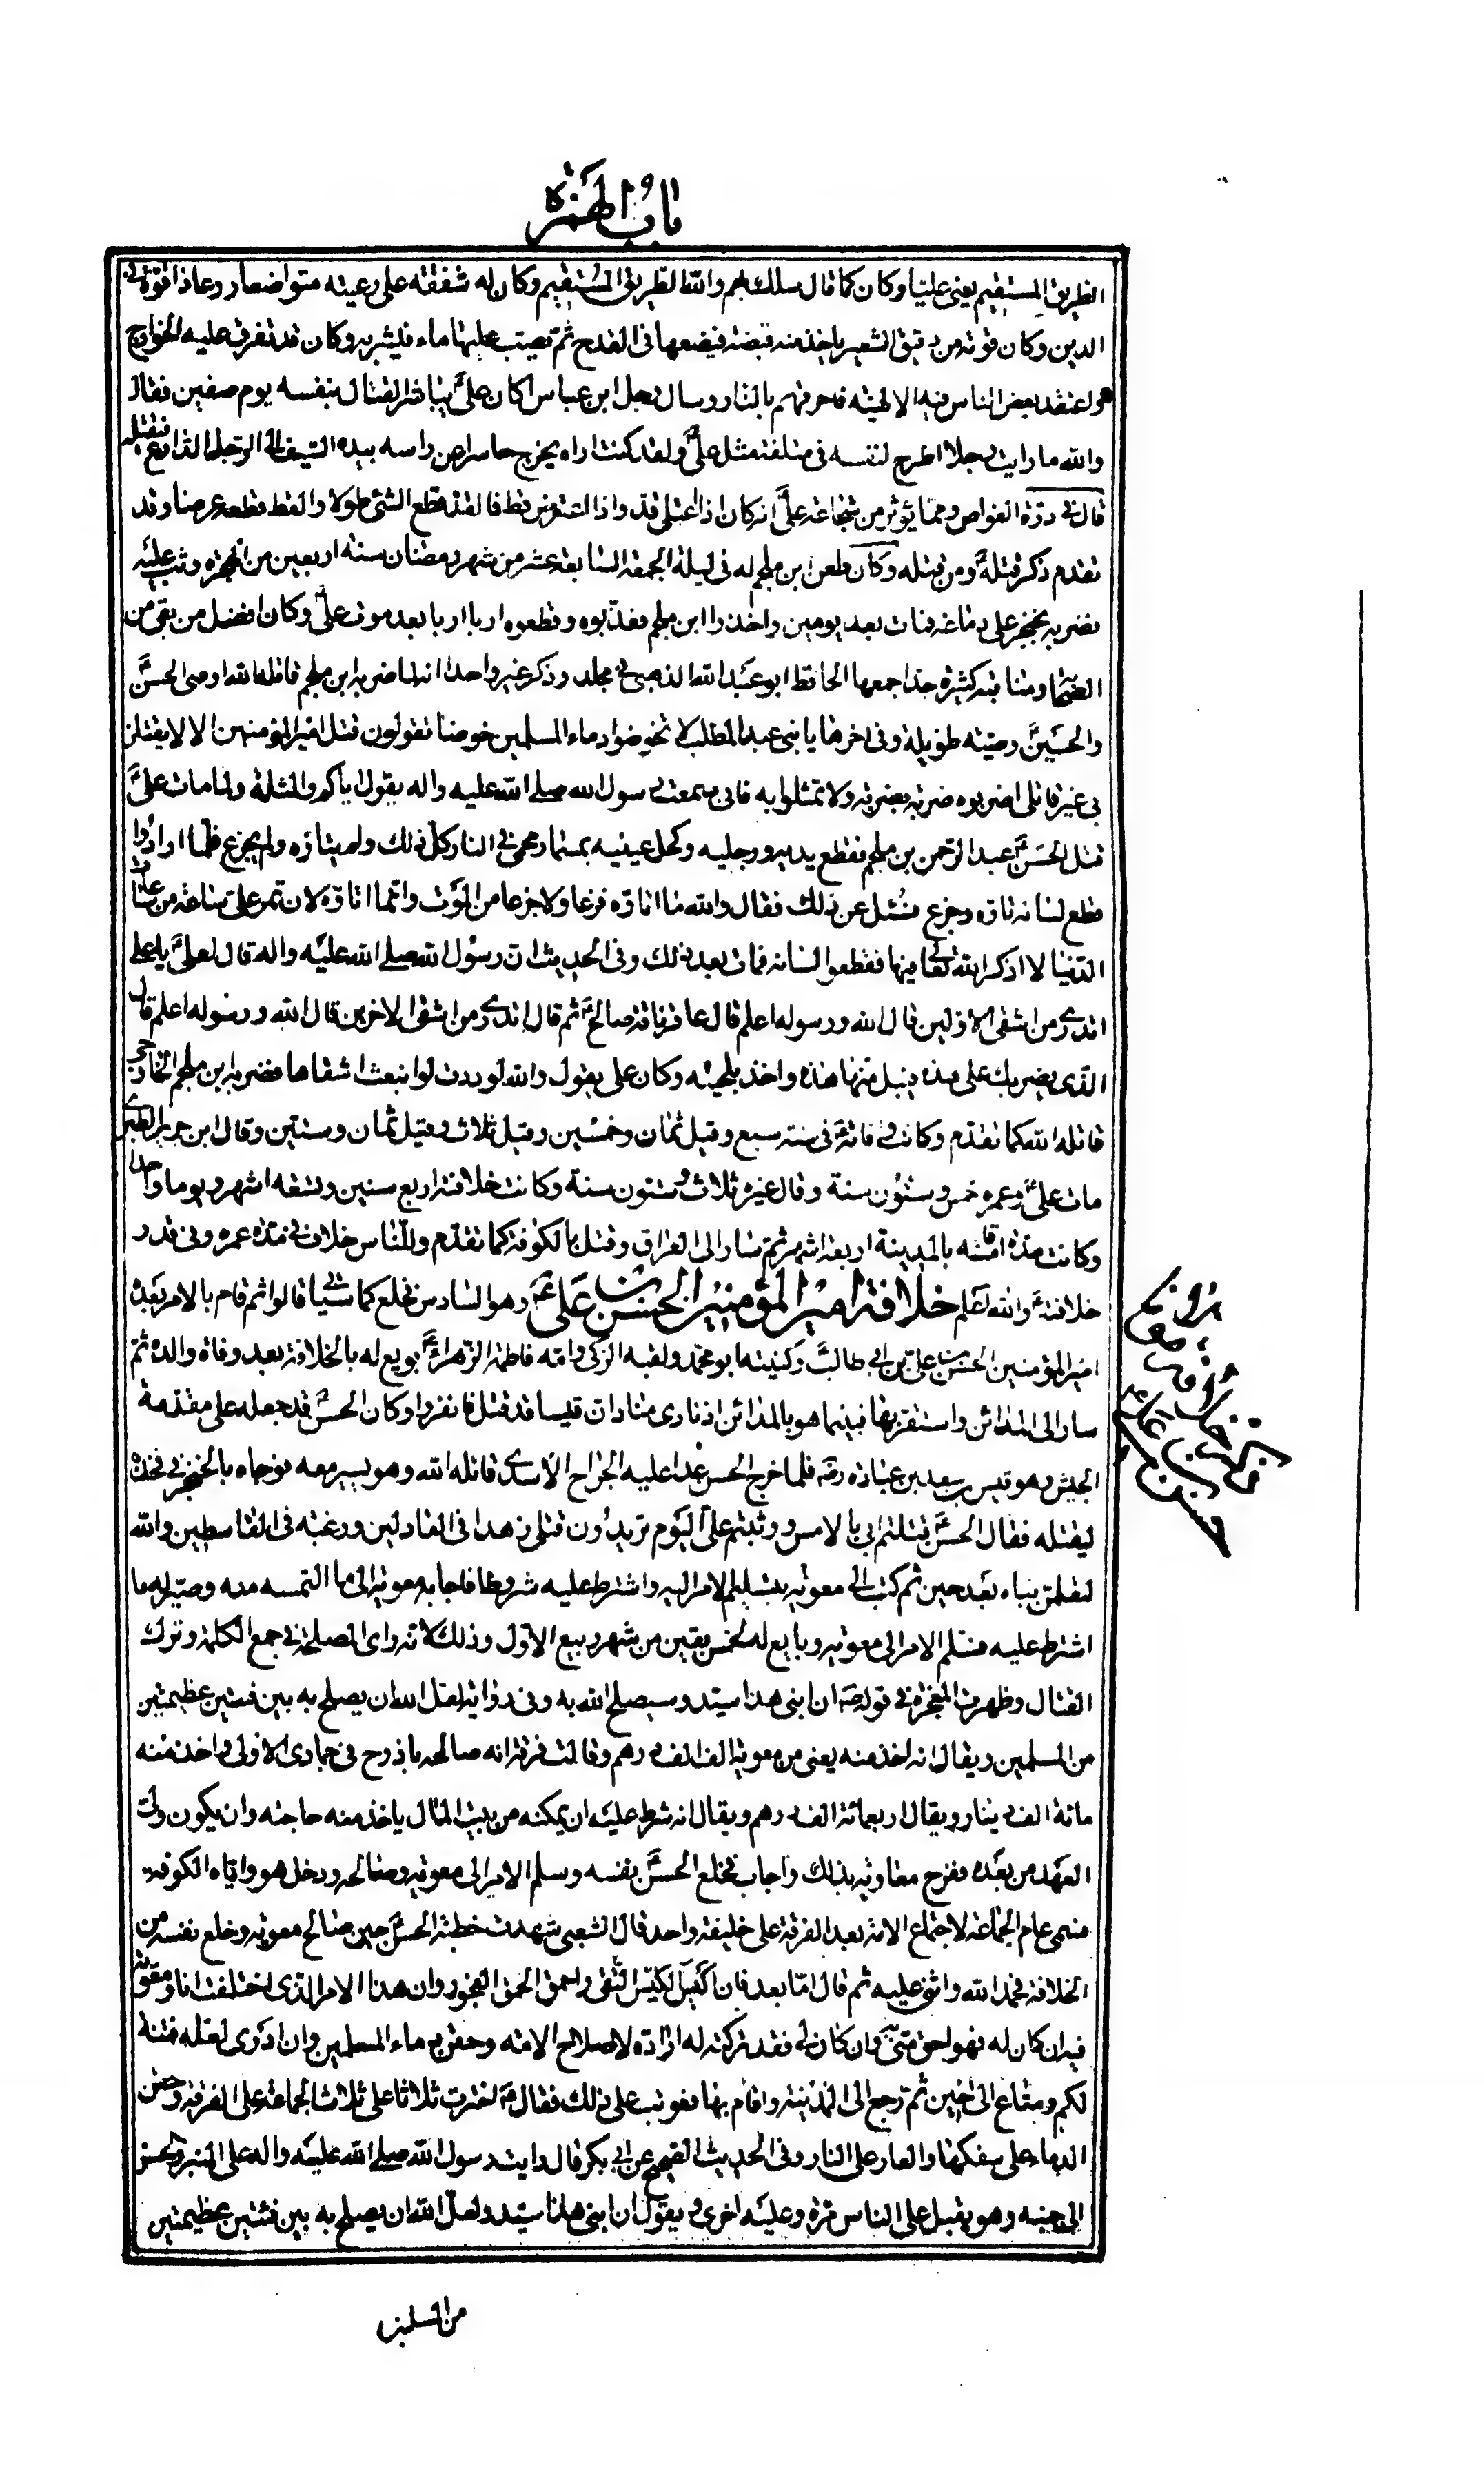 باب الهمزة
الطريق المستقيم يعني عليا وكان كما قال سلك بهم والله الطريق المستقيم وكان له شفقة على رعيته متواضعا ورعا ذا قوة في
الدين وكان قوته من دقيق الشعير ياخذ منه قبضة فيضعها في القدح ثم يصب عليها ماء فيشربه وكان قد تفرق عليه الخوارج
واعتقد بعض الناس فيه الالهية فاحرقهم بالنار وسال رجل ابن عباس اكان علي يباشر القتال بنفسه يوم صفين فقال
والله ما رايت رجلا اطرح لنفسه في متلفة مثل علي ولقد كنت اراه يخرج حاسرا عن راسه بيده السيف الى الرجل الدارع فيقتله
قال في درة الغواص ومما يؤثر من شجاعة علي انه كان اذا اعتلى قد واذا اعترض قط فالقد قطع الشئ طولا والقط قطعه عرضا وقد
تقدم ذكر قتله ومن قتله وكان طعن ابن ملجم له في ليلة الجمعة السابعة عشر من شهر رمضان سنة اربعين من الهجرة وثب عليه
فضربه بخنجر على دماغه فمات بعد يومين واخذوا ابن ملجم فعذبوه وقطعوه اربا اربا بعد موت علي وكان افضل من بقي من
الصحابة ومناقبه كثيرة جدا جمعها الحافظ ابو عبد الله الذهبي في مجلد وذكر غير واحد انه لما ضربه ابن ملجم قاتله الله اوصى الحسن
والحسين وصيته طويلة وفي اخرها يا بني عبد المطلب لا تخوضوا دماء المسلمين خوضا تقولون قتل امير المؤمنين الا لا يقتلن
بي غير قاتلي اضربوه ضربة بضربة ولا تمثلوا به فاني سمعت رسول الله صلى الله عليه واله يقول اياكم والمثلة ولما مات علي
قتل الحسن عبد الرحمن بن ملجم فقطع يديه ورجليه وكحل عينيه بمسمار محمى في النار كل ذلك ولم يتاوه ولم يجزع فلما ارادوا
قطع لسانه تاوه وجزع فسئل عن ذلك فقال والله ما اتاوه فزعا ولا جزعا من الموت وانما اتاوه لان تمر علي ساعة من ساعات
الدنيا لا اذكر الله تعالى فيها فقطعوا لسانه فمات بعد ذلك وفي الحديث ان رسول الله صلى الله عليه واله قال لعلي يا علي
اتدري من اشقى الاولين قال الله ورسوله اعلم قال عاقر ناقة صالح ثم قال اتدري من اشقى الاخرين قال الله ورسوله اعلم قال
الذي يضربك على هذه فيبل منها هذه واخذ بلحيته وكان علي يقول والله لوددت لو انبعث اشقاها فضربه ابن ملجم الخارجي
قاتله الله كما تقدم وكانت وفاته في سنه سبع وقيل ثمان وخمسين وقيل ثلاث وقيل ثمان وستين وقال ابن جرير الطبري
مات علي وعمره خمس وستون سنة وقال غيره ثلاث وستون سنة وكانت خلافته اربع سنين وتسعه اشهر ويوما واحدا
وكانت مدة اقامته بالمدينة اربعة اشهر ثم سار الى العراق وقتل بالكوفة كما تقدم وللناس خلاف في مدة عمره وفي قدر
خلافته والله اعلم خلافة امير المؤمنين الحسن بن علي وهو السادس فخلع كما سياتي قالوا ثم قام بالامر بعده
امير المؤمنين الحسن بن علي بن ابي طالب وكنيته ابو محمد ولقبه الزكي وامه فاطمة الزهراء بويع له بالخلافة بعد وفاة والده ثم
سار الى المدائن واستقر بها فبينما هو بالمدائن اذ نادى مناد ان قيسا قد قتل فانفروا وكان الحسن قد جعله على مقدمة
الجيش وهو قيس بن سعد بن عبادة فلما خرج الحسن عدا عليه الجراح الاسدي قاتله الله وهو يسير معه فوجاه بالخنجر في فخذه
ليقتله فقال الحسن قتلتم ابي بالامس ووثبتم علي اليوم تريدون قتلي زهدا في العادلين ورغبة في القاسطين والله
لتعلمن نباه بعد حين ثم كتب الى معوية بتسليم الامر اليه واشترط عليه شروطا فاجابه معوية الى ما التمسه منه وصير له ما
اشترط عليه فسلم الامر الى معوية وبايع له لخمس بقين من شهر ربيع الاول وذلك لانه راى المصلحة في جمع الكلمة وترك
القتال وظهرت المعجزة في قوله ان ابني هذا سيد وسيصلح الله به وفي رواية لعل الله ان يصلح به بين فئتين عظيمتين
من المسلمين ويقال انه اخذ منه يعني من معوية الف الف درهم وقالت فرقة انه صالحه باذرح في جمادى الاولى واخذ منه
مائة الف دينار ويقال اربعمائة الف درهم ويقال انه شرط عليه ان يمكنه من بيت المال ياخذ منه حاجته وان يكون ولي
العهد من بعده ففرح معاوية بذلك واجاب فخلع الحسن نفسه وسلم الامر الى معوية وصالحه ودخل هو واياه الكوفة
فسمي عام الجماعة لاجتماع الامة بعد الفرقة على خليفة واحد قال الشعبي شهدت خطبة الحسن حين صالح معوية وخلع نفسه من
الخلافة فحمد الله واثنى عليه ثم قال اما بعد فان اكيس الكيس التقى واحمق الحمق الفجور وان هذا الامر الذي اختلفت انا ومعوية
فيه ان كان له فهو احق مني وان كان لي فقد تركته له ارادة لاصلاح الامة وحقن دماء المسلمين وان ادري لعله فتنة
لكم ومتاع الى حين ثم رجع الى المدينة واقام بها فعوتب على ذلك فقال اخترت ثلاثا على ثلاث الجماعة على الفرقة وحقن
الدماء على سفكها والعار على النار وفي الحديث الصحيح عن ابي بكر قال رايت رسول الله صلى الله عليه واله على المنبر والحسن
الى جنبه وهو يقبل على الناس مرة وعليه اخرى ويقول ان ابني هذا سيد ولعل الله ان يصلح به بين فئتين عظيمتين
من المسلمين